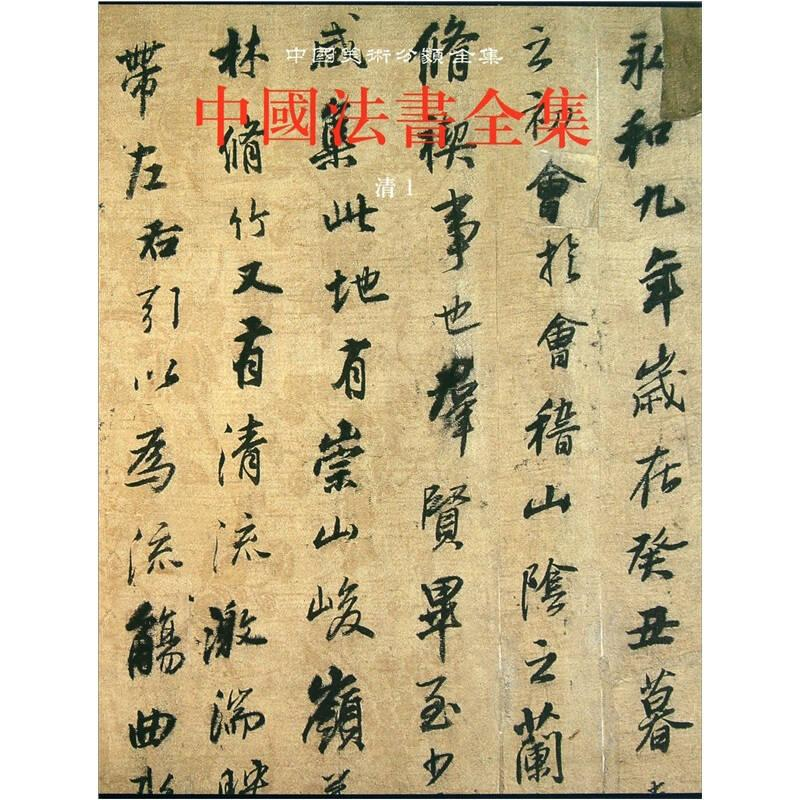 中國美術分類全集
中國法書全集
清 1
永和九年歲在癸丑暮
之初會扵會稽山陰之蘭
脩禊事也羣賢畢至少
咸集此地有崇山峻嶺
林脩竹又有清流激湍映
帶左右引以為流觴曲水